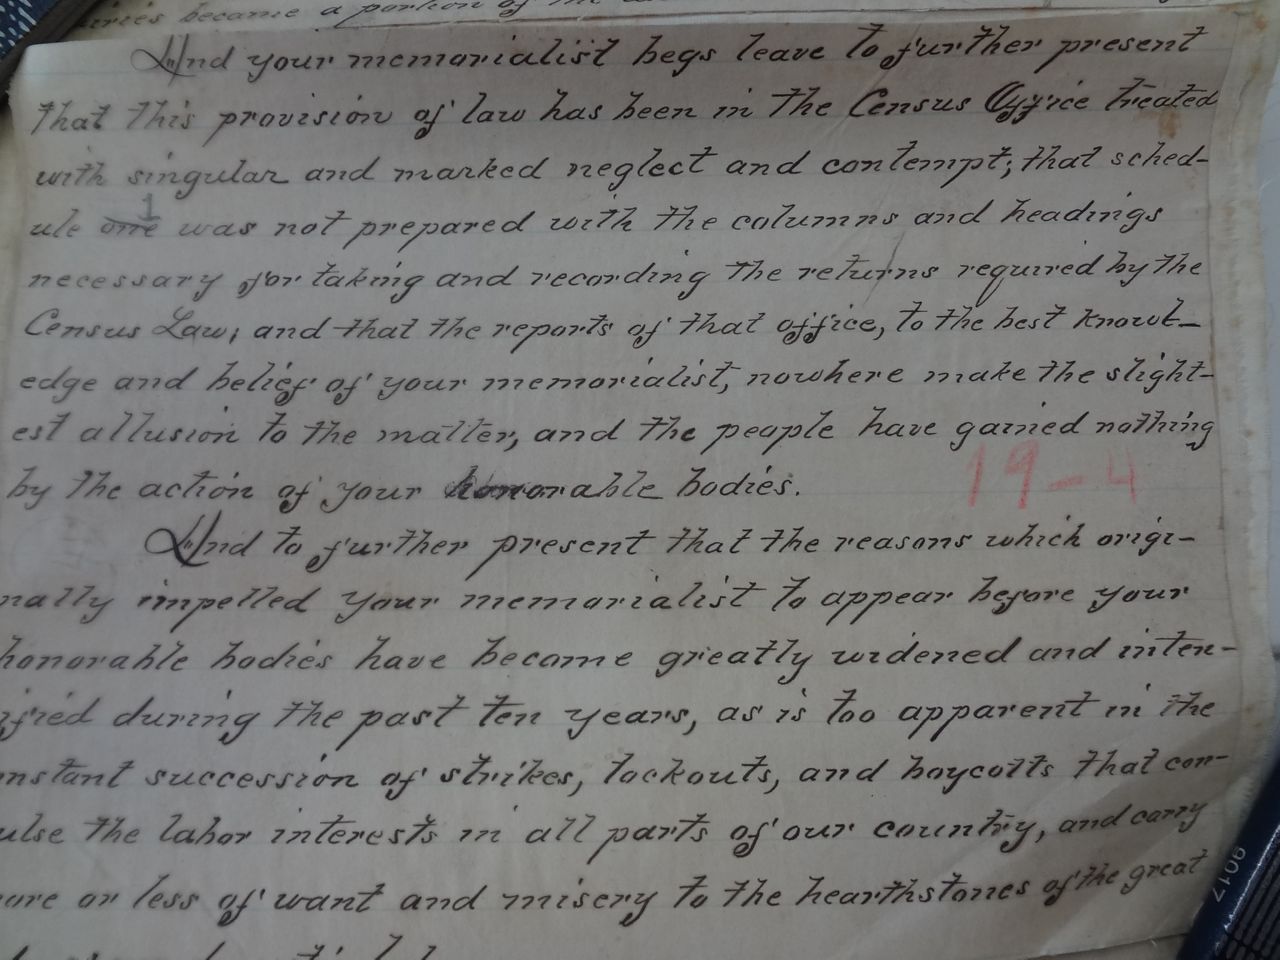 became a portion of the
And your memorialist begs leave to further present
that this provision of law has been in the Census Office treated
with singular and marked neglect and contempt; that sched-
1
ule one was not prepared with the columns and headings
necessary for taking and recording the returns required by the
Census Law; and that the reports of that office, to the best knowl-
edge and belief of your memorialist, nowhere make the slight-
est allusion to the matter, and the people have gained nothing
by the action of your honorable bodies.
19-4
And to further present that the reasons which origi-
nally impelled your memorialist to appear before your
honorable bodies have become greatly widened and inten-
ified during the past ten years, as is too apparent in the
nstant succession of strikes, lockouts, and boycotts that con-
ulse the labor interests in all parts of our country, and carry
ore or less of want and misery to the hearthstones of the great
9017